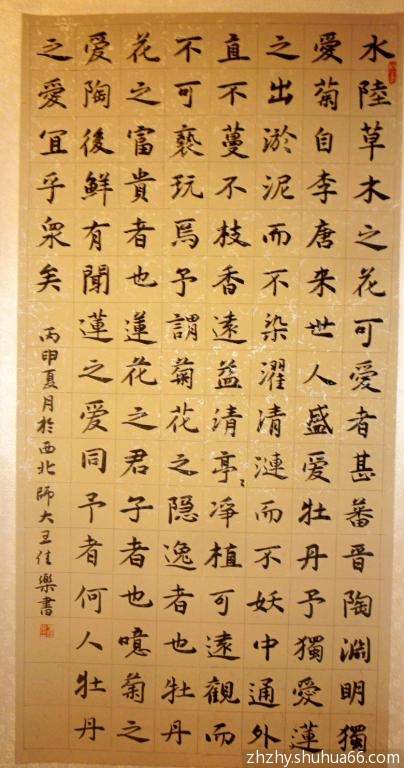 水陸草木之花可愛者甚蕃晋陶淵明獨
愛菊自李唐来世人盛爱牡丹予獨愛蓮
之出淤泥而不染濯清漣而不妖中通外
直不蔓不枝香遠益清亭〻凈植可遠觀而
不可褻玩焉予謂菊花之隐逸者也牡丹
花之富貴者也蓮花之君子者也噫菊之
愛陶後鮮有聞蓮之爱同予者何人牡丹
之愛宜乎衆矣
丙申夏月於西北師大王佳樂書
zhzhy.shuhua66.com